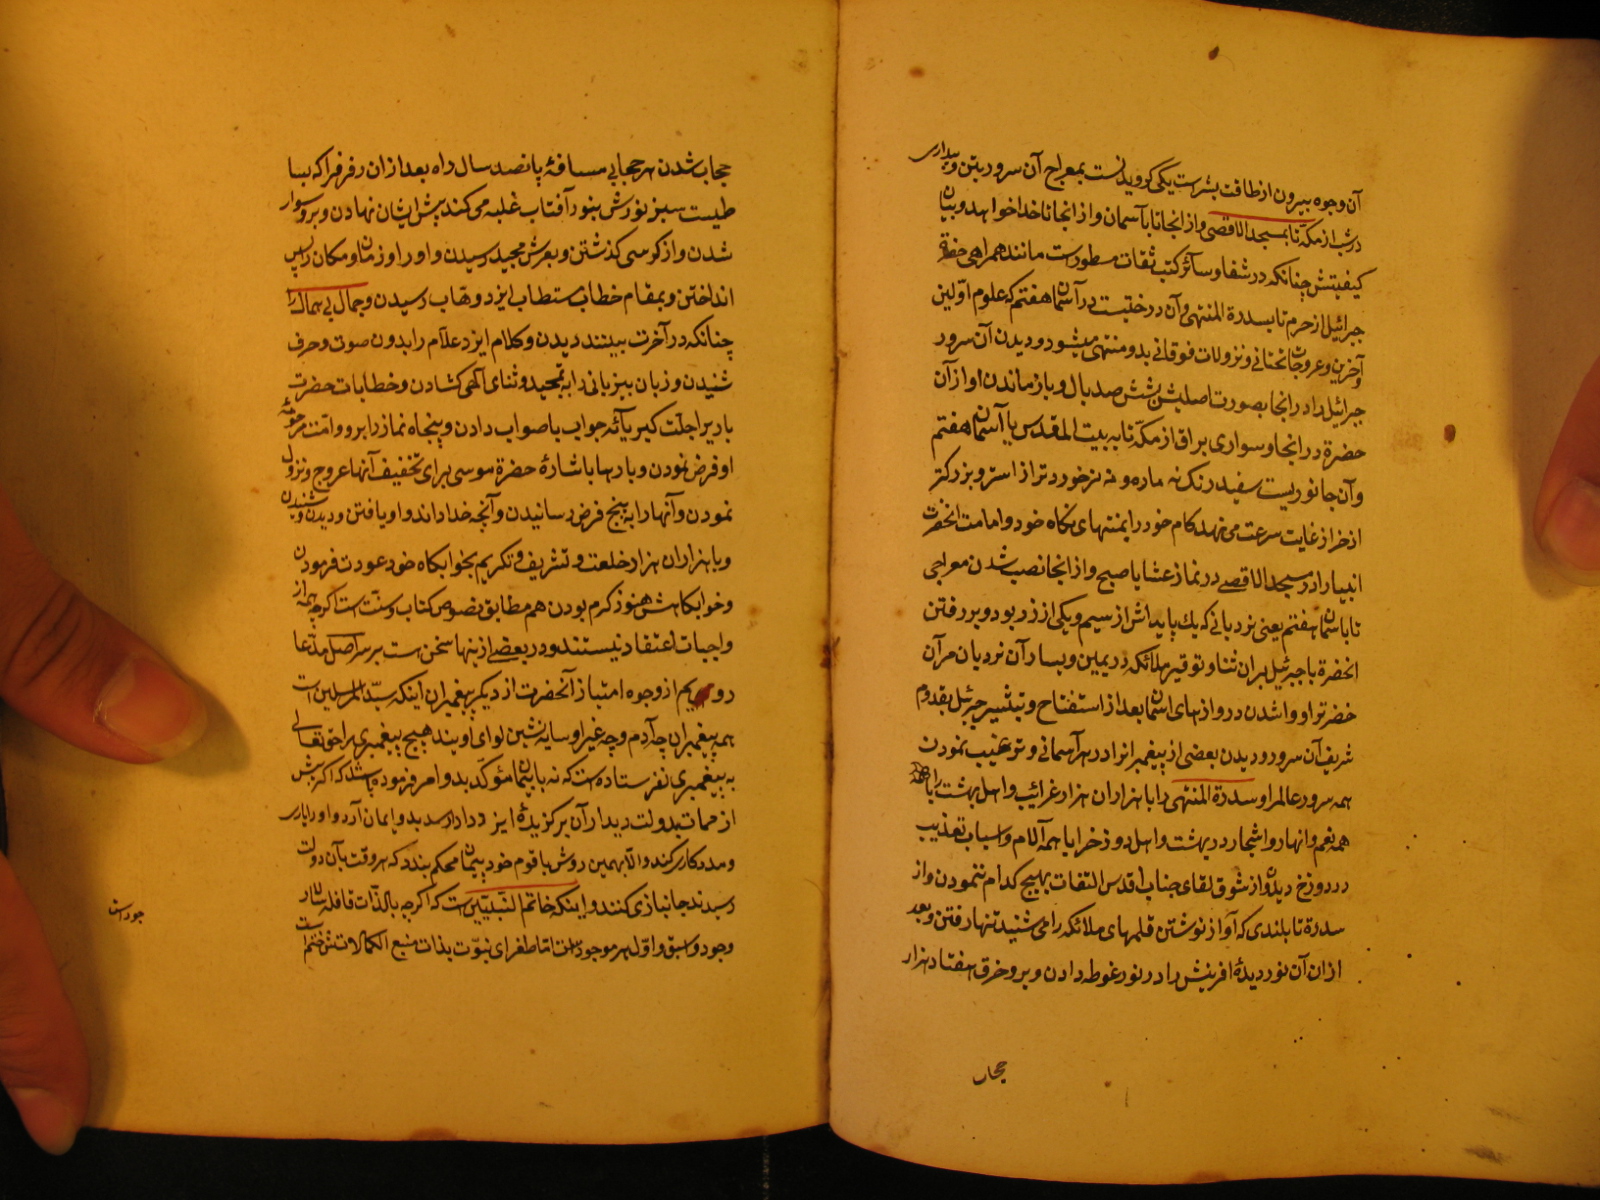 آن وجوه بیرون از طاقت بشراست یکی کرویدنست بمعراج آن سرور بتن وبیداری
درشب از مکه تا بمسجد الاقصی واز انجا تا بآسمان واز انجا تا خدا خواهد وبیان
کیفیتش چنانکه در شفا وسائر کتب ثقات مسطورست مانند همراهی حضرة
جبرائیل از حرم تا بسدرة المنتهی وآن درختیست در آسمان هفتم که علوم اولین
وآخرین وعروجات تحتانی ونزولات فوقانی بدو منتهی میشود ودیدن آن سرور
جبرائیل را در انجا بصورت اصلیش بشش صد بال وباز ماندن او از آن
حضرة در انجا وسواری براق از مکه تا به بیت المقدس یا آسمان هفتم
وآن جانوریست سفید رنک نه ماده ونه نر خوردتر از استر وبزرکتر
از خر از غایت سرعت می نهد کام خود را بمنتهای نکاه خود وامامت آنحضرت
انبیا را در مسجد الاقصی در نماز عشا یا صبح واز انجا نصب شدن معراجی
تا باسمان هفتم یعنی نردبانی که یك پایه اش از سیم ویکی از زر بود وبر رفتن
آنحضرة با جبرئیل بران ثنا وتوقیر ملائکه در یمین ویسار آن نردبان مرآن
حضرترا ووا شدن دروازهای اسمان بعد از استفتاح وتبشیر جبرئیل بقدوم
شریف آن سرور ودیدن بعضی از پیغمبرانرا در هر آسمانی وترغیب نمودن
همه سرور عالمرا وسدرة المنتهی را با هزاران هزار غرائب واهل بهشت را با
همه نعم وانهار واشجار در بهشت واهل دوزخ را با همه آلام واسباب تعذیب
در دوزخ دیدن واز شوق لقای جناب اقدس التفات بهیچ کدام ننمودن واز
سدرة تا بلندی که آواز نوشتن قلمهای ملائکه را می شنید تنها رفتن وبعد
از ان آن نور دیدهٔ افرینش را در نور غوطه دادن وبر وخرق هفتاد هزار
حجاب
حجاب شدن هر حجابی مسافهٔ پانصد سال راه بعد از ان رفرف را که بسا
طیست سبز نورش بنور آفتاب غلبه می کند پیش ایشان نهادن وبرو سوار
شدن واز کرسی کذشتن وبعرش مجید رسیدن واورا وزمان ومکان را پس
انداختن وبمقام خطاب مستطاب ایزد وهاب رسیدن وجمال بی همال را
چنانکه در آخرت ببینند دیدن وکلام ایزد علام را بدون صوت وحرف
شنیدن وزبان بیزبانی را به تمجید وثنای آلهی کشادن وخطابات حضرت
باریرا جلت کبریائه جواب با صواب دادن وپنجاه نماز را برو وامت مرحومهٔ
او فرض نمودن وبارها باشارهٔ حضرة موسی برای تخفیف آنها عروج ونزول
نمودن وآنها را به پنج فرض رسانیدن وآنچه خدا داند واو یافتن ودیدن وشنیدن
وبا هزاران هزار خلعت وتشریف وتکریم بخوابکاه خود عودت فرمودن
وخوابکاهش هنوز کرم بودن هم مطابق نصوص کتاب وسنت است اکرچه همه از
واجبات اعتقاد نیستند ودر بعضی از ینها سخن است بر سر اصل مدعا
رویم از وجوه امتیاز آنحضرت از دیکر پیغمبران اینکه سید المرسلین است
همه پیغمبران چه آدم وچه غیر او سایه نشین لوای اویند هیچ پیغمبری را حق تعالی
به پیغمبری نفرستاده است که نه با پیمان مؤکد بدو امر فرموده باشد که اکر پیش
از ممات بدولت دیدار آن برکزیدهٔ ایزد دادار رسد بدو ایمان آرد واورا یاری
ومددکاری کند والا بهمین روش با قوم خود پیمان محکم بندد که هر وقت بآن دولت
رسیدند جانبازی کنند واینکه خاتم النبیین است که اکرچه بالذات قافله سالار
وجود وسبق واول هر موجود است اما طغرای نبوت بذات منبع الکمالاتش ختم است